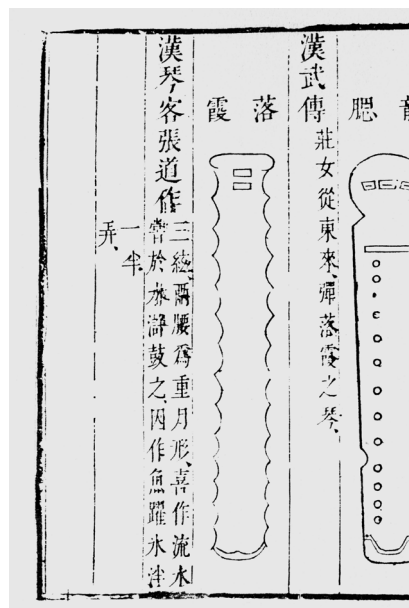 腮
漢武傳
莊女從東來、彈落霞之琴、
落霞
漢琴客張道作
三絃、兩腰爲重月形、喜作流水
嘗於水滸鼓之、因作魚躍水泮
一半
弄、